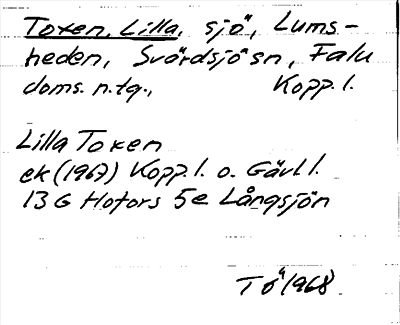 Toxen, Lilla, sjö, Lums-
heden, Svärdsjö sn, Falu
doms. n. tg., Kopp. l.
Lilla Toxen
ek (1967) Kopp. l. o. Gävl. l.
13 G Hofors 5e Långsjön
TÖ 1968